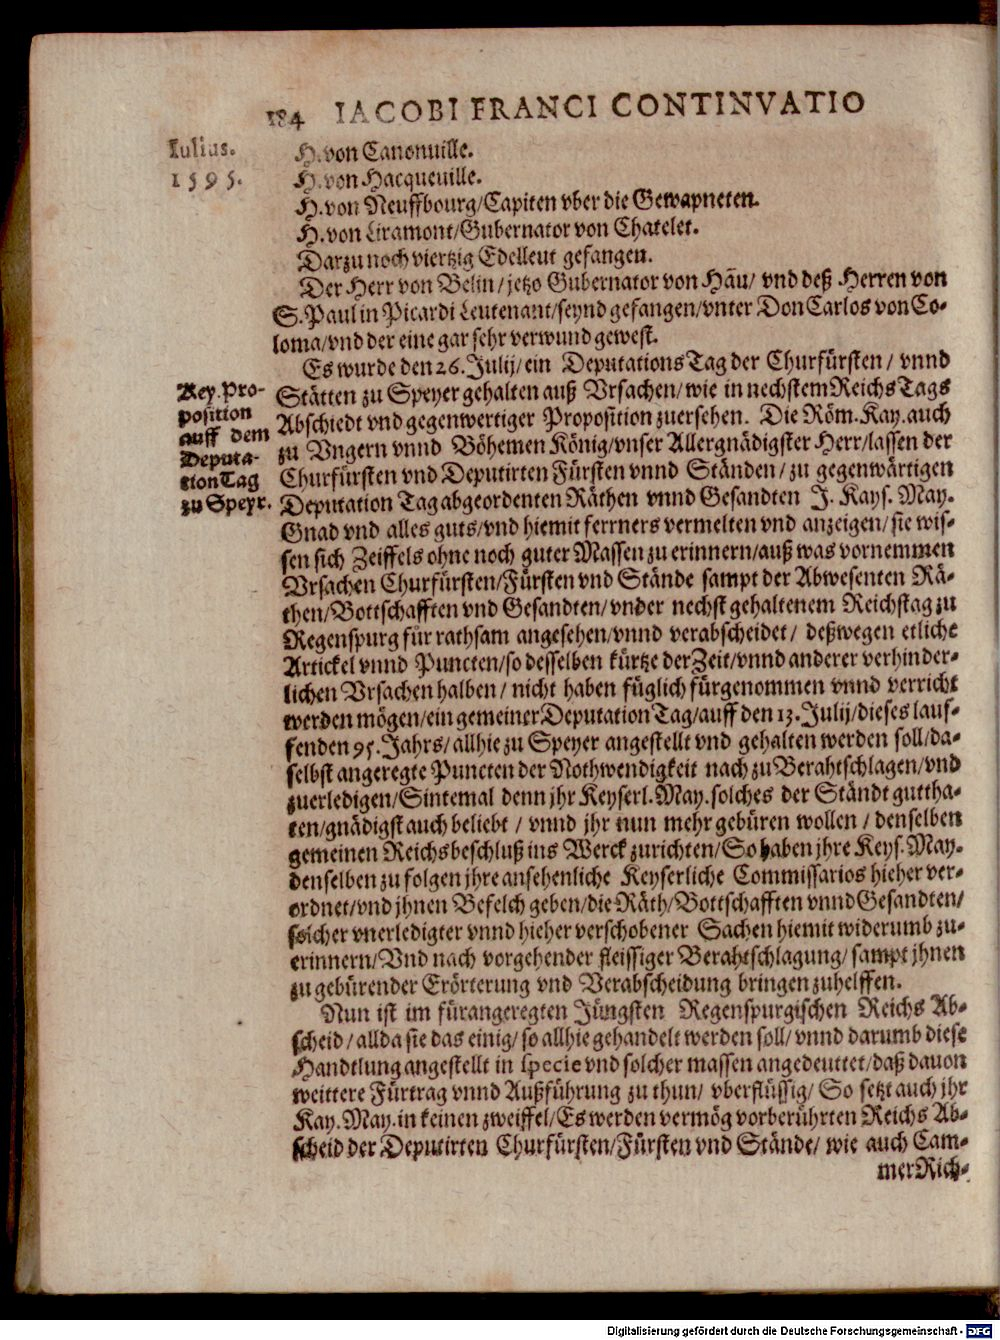 184 IACOBI FRANCI CONTINVATIO
Iulius.
1595.
H. von Canonuille.
H. von Hacqueuille.
H. von Neuffbourg/Capiten vber die Gewapneten.
H. von Liramont/Gubernator von Chatelet.
Darzu noch viertzig Edelleut gefangen.
Der Herr von Belin/ jetzo Gubernator von Hāu/ vnd deß Herren von
S. Paul in Picardi Leutenant/seynd gefangen/vnter Don Carlos von Co-
loma/vnd der eine gar sehr verwund gewest.
Es wurde den 26. Julij/ein Deputations Tag der Churfürsten / vnnd
Key. Pro-
position
auff dem
Deputa-
tion Tag
zu Speyr.
Stätten zu Speyer gehalten auß Vrsachen/ wie in nechstem Reichs Tags
Abschiedt vnd gegenwertiger Proposition zuersehen. Die Röm. Kay. auch
zu Vngern vnnd Böhemen König/vnser Allergnädigster Herr/lassen der
Churfürsten vnd Deputirten Fürsten vnnd Ständen/ zu gegenwärtigen
Deputation Tag abgeordenten Räthen vnnd Gesandten J. Kays. May.
Gnad vnd alles guts/vnd hiemit ferrners vermelten vnd anzeigen/ sie wis-
sen sich Zeiffels ohne noch guter Massen zu erinnern/auß was vornemmen
Vrsachen Churfürsten/Fürsten vnd Stände sampt der Abwesenten Rä-
then/Bottschafften vnd Gesandten/ vnder nechst gehaltenem Reichstag zu
Regenspurg für rathsam angesehen/vnnd verabscheidet/ deßwegen etliche
Artickel vnnd Puncten/so desselben kürtze der Zeit/vnnd anderer verhinder-
lichen Vrsachen halben/ nicht haben füglich fürgenommen vnnd verricht
werden mögen/ein gemeiner Deputation Tag/auff den 13. Julij/dieses lauf-
fenden 95. Jahrs/ allhie zu Speyer angestellt vnd gehalten werden soll/da-
selbst angeregte Puncten der Nothwendigkeit nach zu Berahtschlagen/vnd
zuerledigen/Sintemal denn jhr Keyserl. May. solches der Ständt guttha-
ten/gnädigst auch beliebt / vnnd jhr nun mehr gebüren wollen / denselben
gemeinen Reichsbeschluß ins Werck zurichten/So haben jhre Keys. May.
denselben zu folgen jhre ansehenliche Keyserliche Commissarios hieher ver-
ordnet/vnd jhnen Befelch geben/die Räth/Bottschafften vnnd Gesandten/
solcher vnerledigter vnnd hieher verschobener Sachen hiemit widerumb zu-
erinnern/Vnd nach vorgehender fleissiger Berahtschlagung/ sampt jhnen
zu gebürender Erörterung vnd Verabscheidung bringen zuhelffen.
Nun ist im fürangeregten Jüngsten Regenspurgischen Reichs Ab-
scheid/ allda sie das einig/ so allhie gehandelt werden soll/ vnnd darumb diese
Handtlung angestellt in specie vnd solcher massen angedeuttet/daß dauon
weittere Fürtrag vnnd Außführung zu thun/ vberflüssig/ So setzt auch jhr
Kay. May. in keinen zweiffel/Es werden vermög vorberührten Reichs Ab-
scheid der Deputirten Churfürsten/Fürsten vnd Stände/ wie auch Cam-
mer Rich-
Digitalisierung gefördert durch die Deutsche Forschungsgemeinschaft - DFG